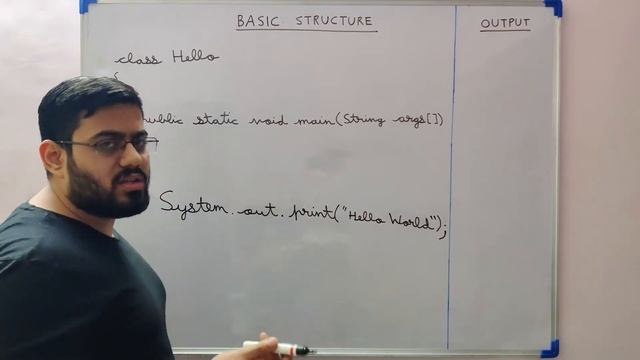 BASIC STRUCTURE
OUTPUT
class Hello
{
public static void main(String args[])
System.out.print("Hello World");